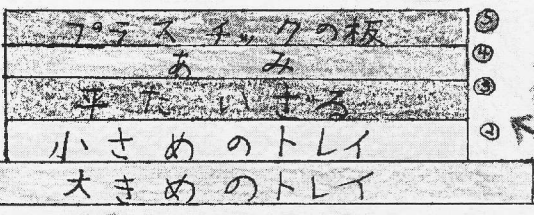 プラスチックの板 ⑤
あみ ④
平たいざる ③
小さめのトレイ ②
大きめのトレイ